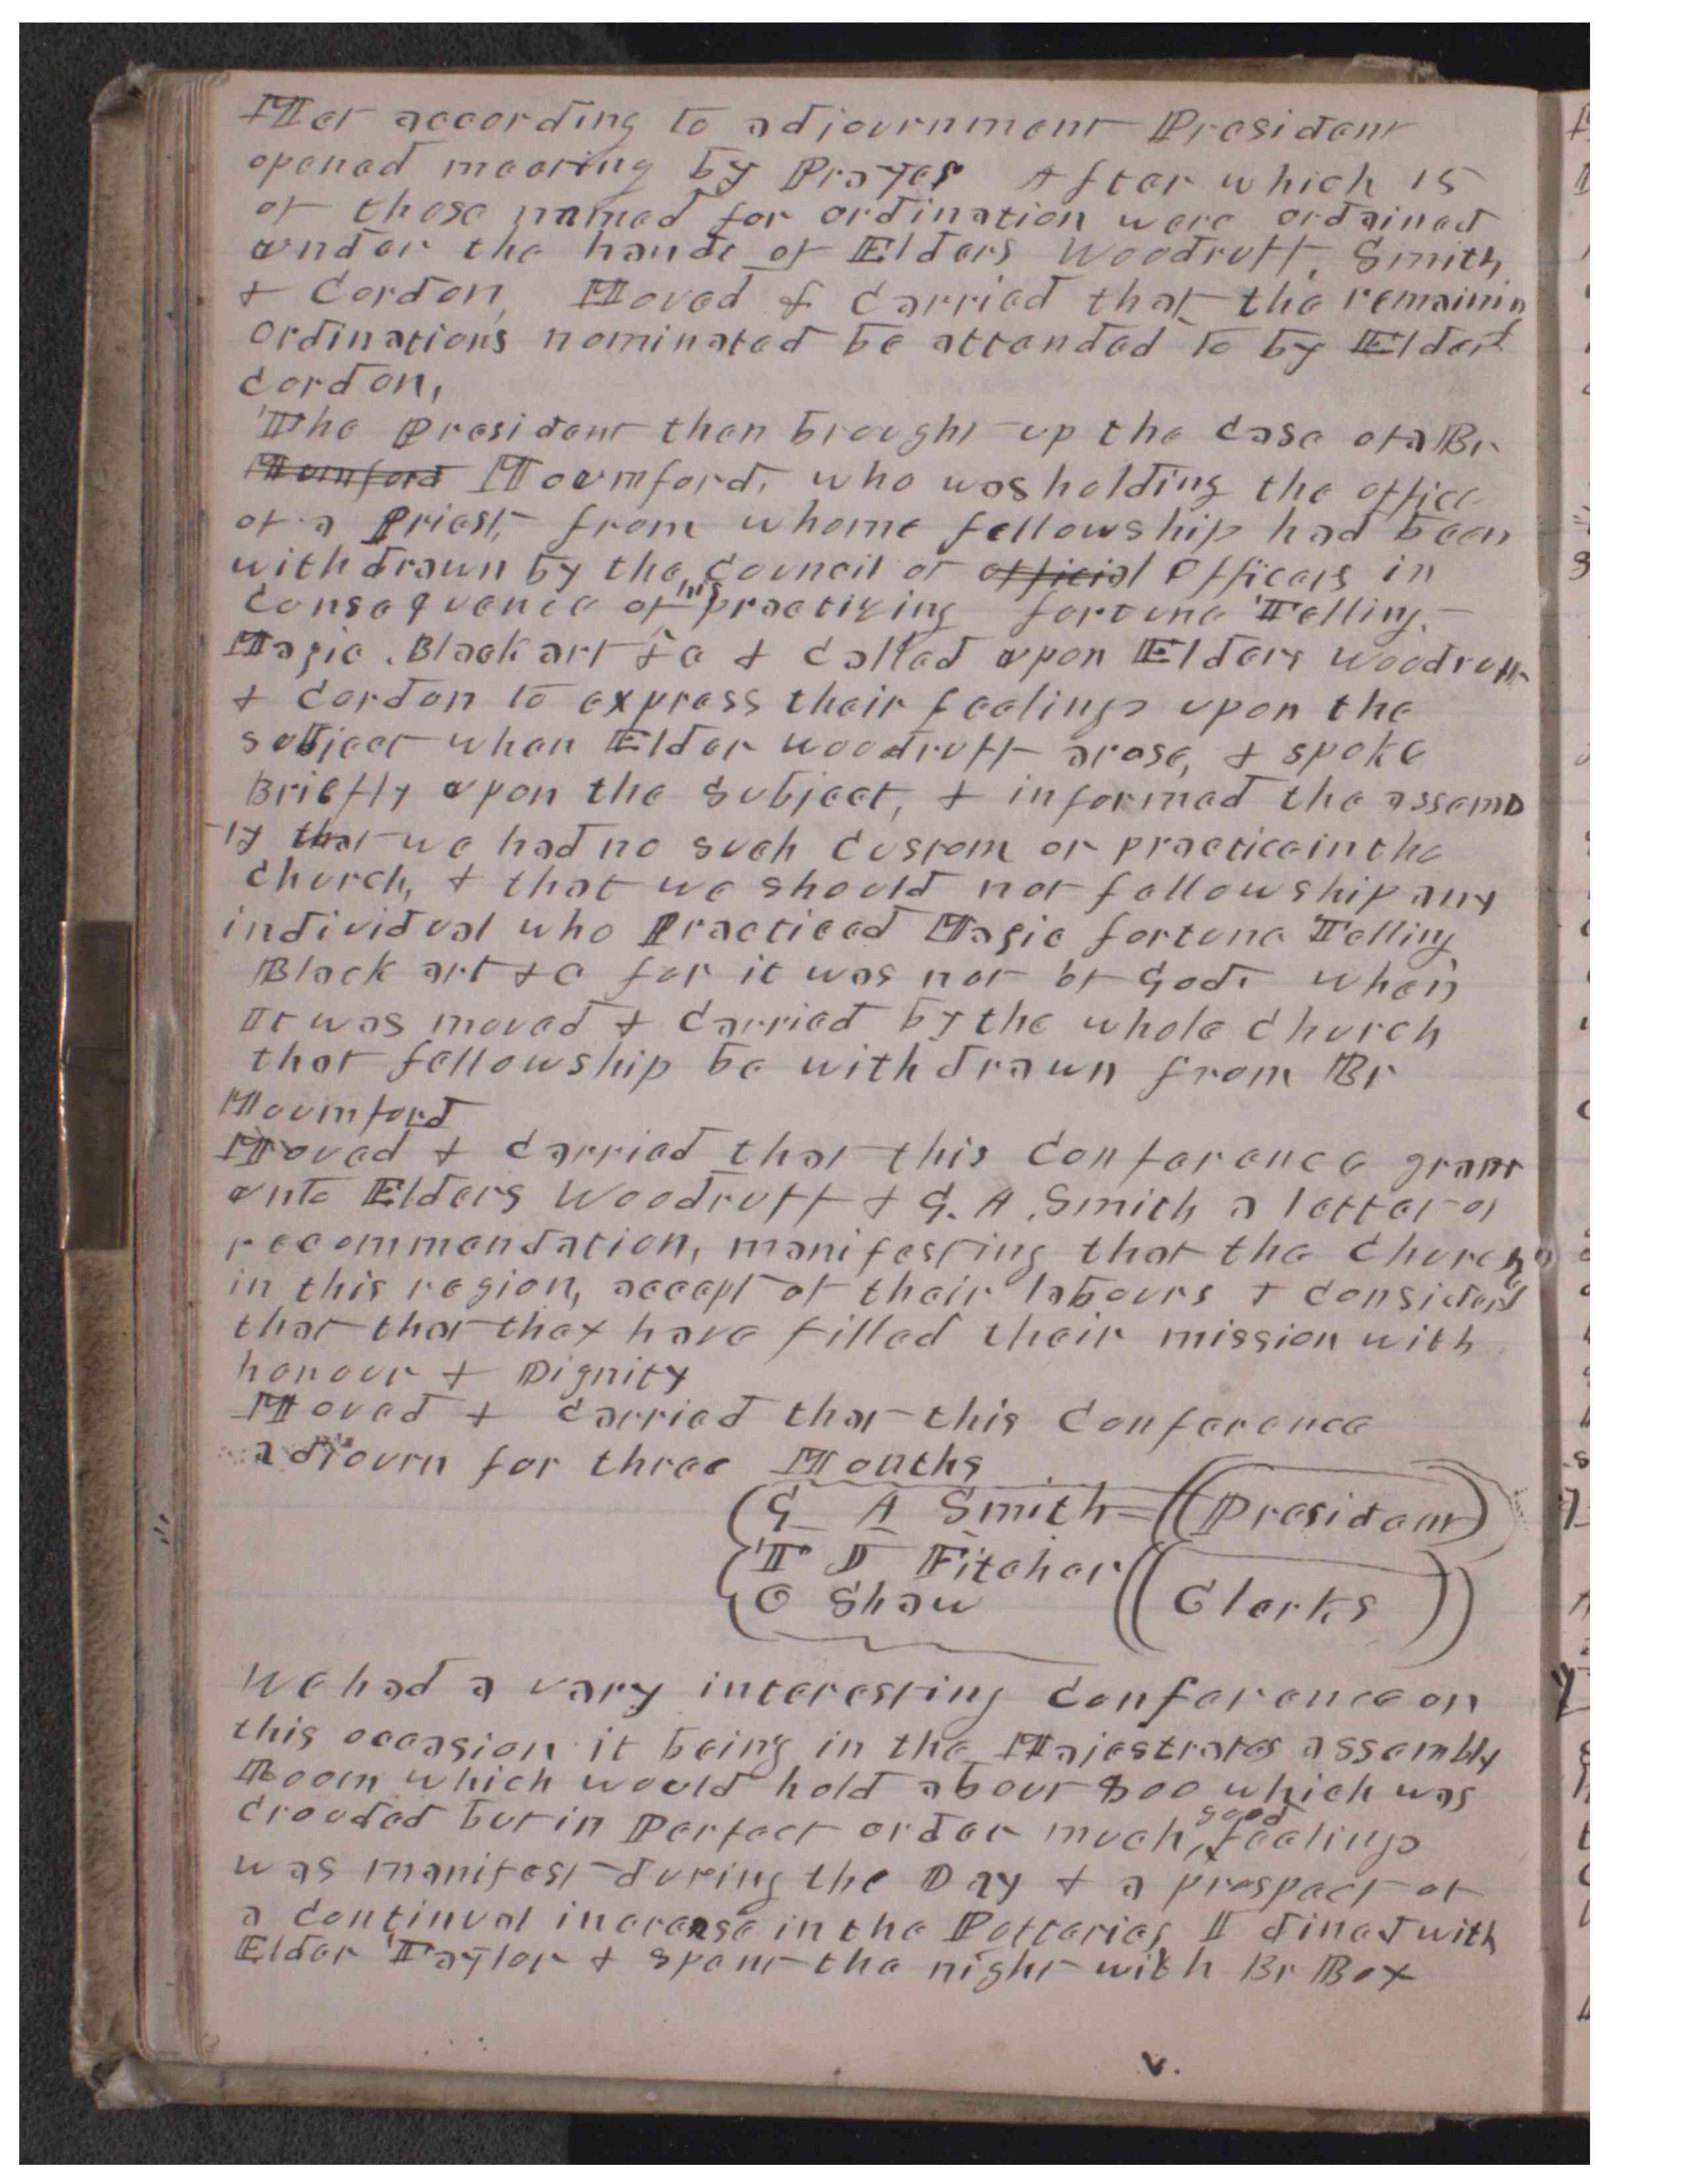 Met according to adjournment President
opened meeting by Prayer After which 15
of those named for ordination were ordained
under the hands of Elders Woodruff, Smith,
& Cordon, Moved & Carried that the remainin
ordinations nominated be attended to by Elder
Cordon,
The President then brought up the case of a Br
Moumford Moumford, who was holding the office
of a Priest, from whome fellowship had been
withdrawn by the council of official Officers in
Consequence of his practizing fortune Telling.
Magic. Black art &c & called upon Elders Woodruff
& Cordon to express their feelings upon the
subject when Elder Woodruff arose, & spoke
Briefly upon the subject, & informed the assemb
-ly that we had no such custom or practice in the
church, & that we should not fellowship any
individual who Practiced Magic fortune Telling
Black art &c for it was not of God. when
It was moved & carried by the whole church
that fellowship be withdrawn from Br
Moumford
Moved & carried that this Conference grant
unto Elders Woodruff & G. A. Smith a letter of
recommendation, manifesting that the Church
in this region, accept of their labours & consider
that that they have filled their mission with
honour & Dignity
Moved & carried that this Conference
adjourn for three Months
G A Smith = President
T J Fitcher
O Shaw Clerks
We had a vary interesting conference on
this occasion it being in the Majestrates assembly
Room which would hold about 800 which was
crouded but in Perfect order much good feelings
was manifest during the Day & a prospect of
a continual increase in the Potteries I dined with
Elder Taylor & spent the night with Br Box
v.